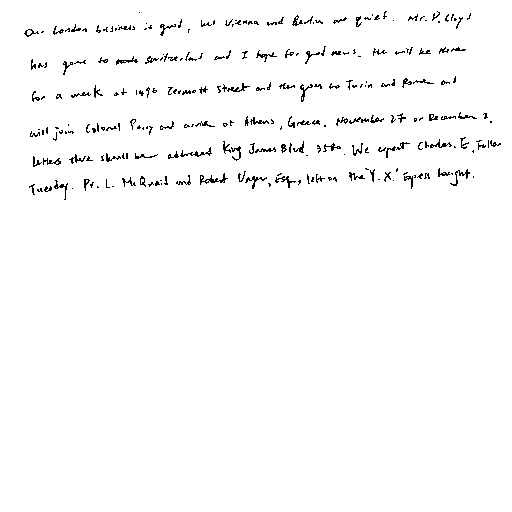 Our London business is good, but Vienna and Berlin are quiet. Mr. D. Lloyd
has gone to Switzerland and I hope for good news. He will be there
for a week at 1496 Zermott Street and then goes to Turin and Rome and
will join Colonel Parry and arrive at Athens, Greece, November 27 or December 2.
Letters there should be addressed King James Blvd. 3580. We expect Charles E. Fuller
Tuesday. Dr. L. McQuaid and Robert Unger, Esq., left on the "Y.X." Express tonight.